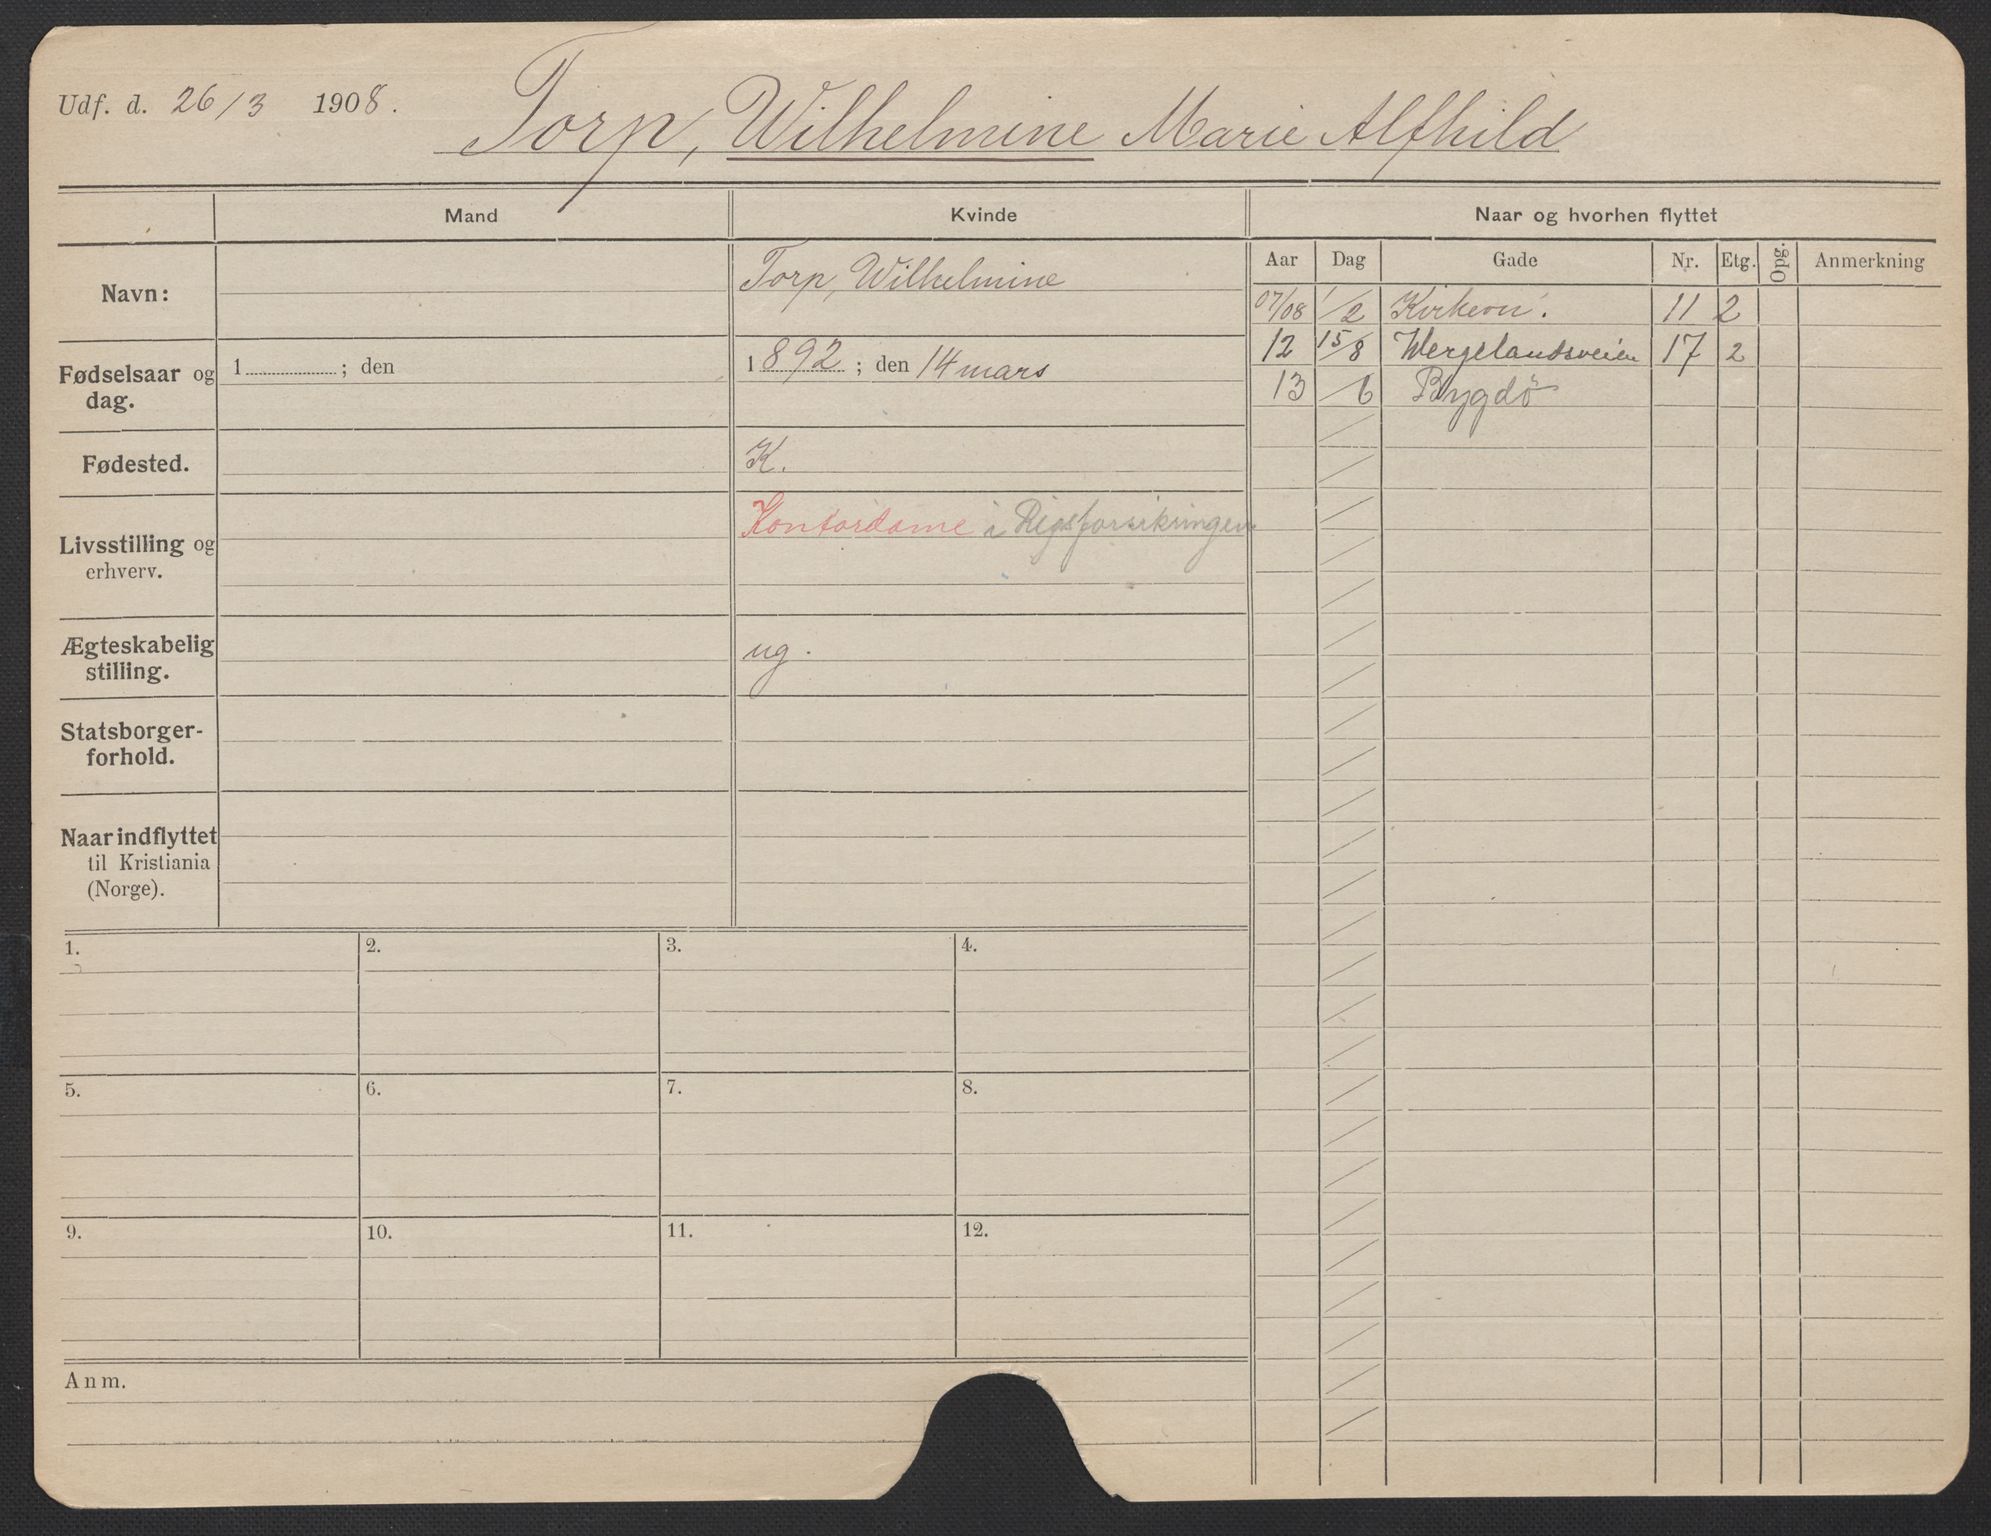 Udf. d. 26/3 1908.
Torp, Wilhelmine Marie Alfhild
Mand Kvinde Naar og hvorhen flyttet
Aar Dag Gade Nr. Etg. Opg. Anmerkning
Navn: Torp, Wilhelmine
07/08 1/2 Kirkevn. 11 2
12 15/8 Wergelandsveien 17 2
13 /6 Bygdö
Fødselsaar og 1 ; den 1892 ; den 14 mars
dag.
Fødested. K.
Kontordame i Rigsforsikringen
Livsstilling og
erhverv.
Ægteskabelig ug.
stilling.
Statsborger-
forhold.
Naar indflyttet
til Kristiania
(Norge).
1. 2. 3. 4.
5. 6. 7. 8.
9. 10. 11. 12.
Anm.